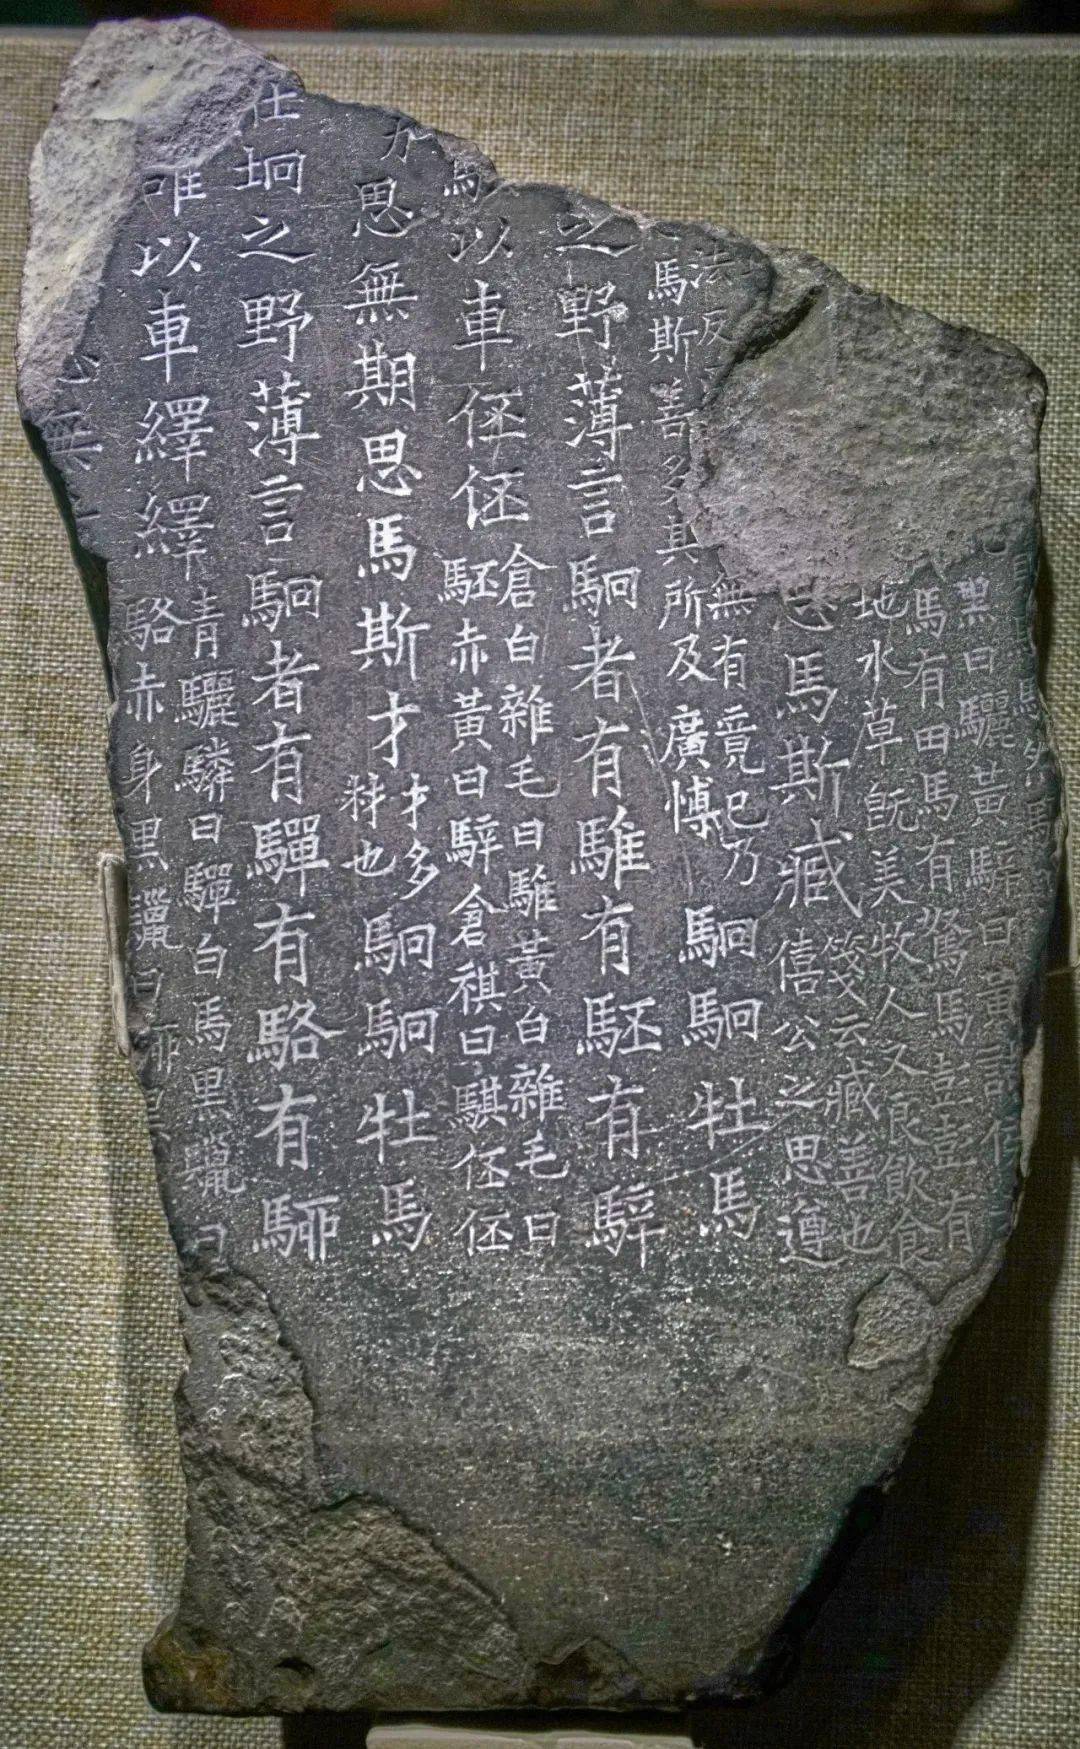 黑曰驪黃騂曰黃諸侯
馬有田馬有駑馬彭彭有
地水草既美牧人又良飲食
思馬斯臧箋云臧善也
僖公之思遵
法反無有竟已乃
馬斯善多其所及廣博
駉駉牡馬
之野薄言駉者有騅有駓有騂
馬以車伾伾倉白雜毛曰騅黃白雜毛曰
駓赤黃曰騂倉祺曰騏伾伾
思無期思馬斯才才多
材也駉駉牡馬
在坰之野薄言駉者有驒有駱有駵
唯以車繹繹青驪驎曰驒白馬黑鬣曰
駱赤身黑鬣曰駵
無